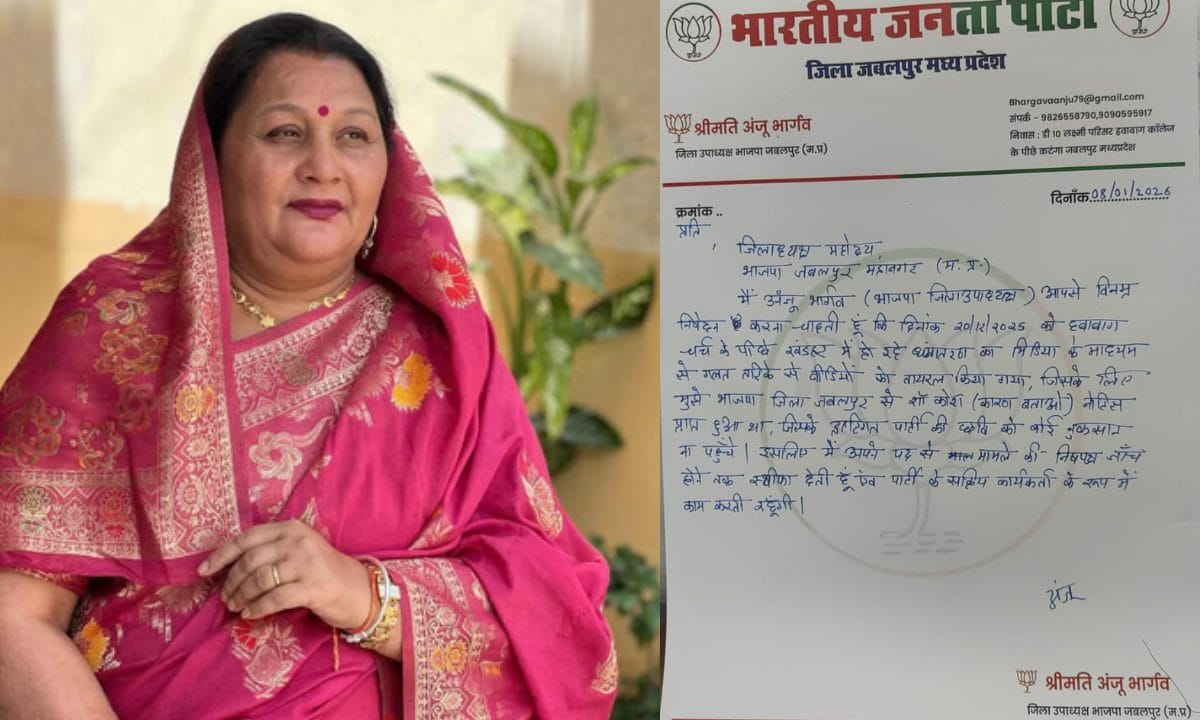 भारतीय जनता पार्टी
जिला जबलपुर मध्य प्रदेश
श्रीमति अंजू भार्गव
जिला उपाध्यक्ष भाजपा जबलपुर (म.प्र)
Bhargavaanju79@gmail.com
संपर्क - 9826558790,9090595917
निवास : डी 10 लक्ष्मी परिसर हवाबाग कॉलेज
के पीछे कटंगा जबलपुर मध्यप्रदेश
क्रमांक ..
दिनाँक 08/01/2026
प्रति,
जिलाध्यक्ष महोदय,
भाजपा जबलपुर महानगर (म.प्र.)
मैं अंजू भार्गव (भाजपा जिलाउपाध्यक्ष) आपसे विनम्र
निवेदन करना चाहती हूँ कि दिनांक 20/12/2025 को हवाबाग
चर्च के पीछे खंडहर में हो रहे धर्मातंरण का मिडिया के माध्यम
से गलत तरिके से वीडियो को वायरल किया गया, जिसके लिए
मुझे भाजपा जिला जबलपुर से शॉ कोश (कारण बताओ) नोटिस
प्राप्त हुआ था, जिसके पार्टी की छवि को कोई नुकसान
ना पहुँचे। इसलिए मैं अपने पद से मामले की निष्पक्ष जाँच
होने तक स्तीफा देती हूँ एंव पार्टी के सक्रिय कार्यकर्ता के रूप में
काम करती रहूंगी।
अंजू
श्रीमति अंजू भार्गव
जिला उपाध्यक्ष भाजपा जबलपुर (म.प्र)